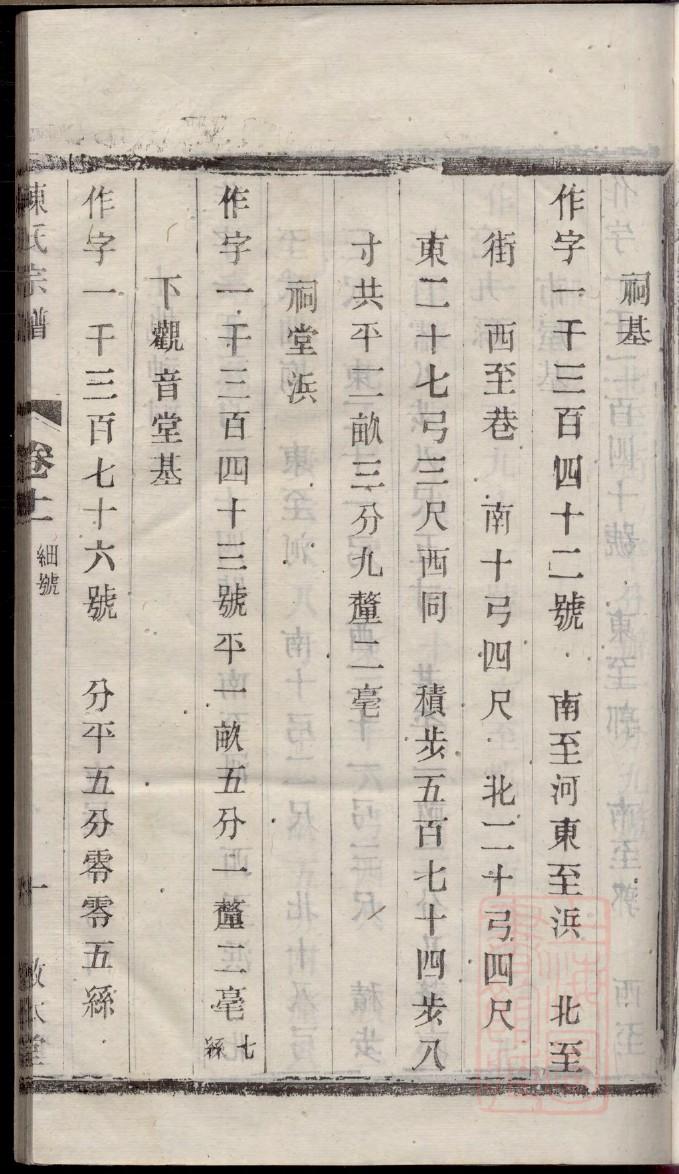 祠基
作字一千三百四十二號 南至河東至浜 北至
街 西至巷 南十弓四尺 北二十弓四尺
東二十七弓三尺西同 積步五百七十四步八
寸共平二畝三分九釐二毫
祠堂浜
作字一千三百四十三號平一畝五分一釐二毫七絲
下觀音堂基
作字一千三百七十六號 分平五分零零五絲
陳氏宗譜 卷十一 細號 一 敦本堂